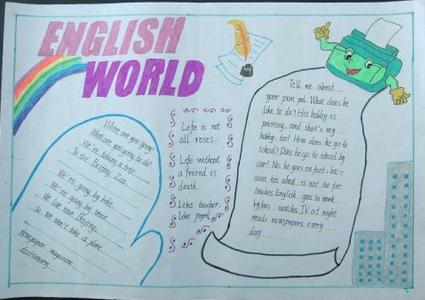 ENGLISH
WORLD
Where are you going?
What are you going to do?
We're taking a trip
To the Beijing Zoo.
We're going by bike.
We're going by train.
So we won't take a plane.
newspaper magazine
dictionary
Life is not
all roses.
Life without
a friend is
death.
Like teacher,
like pupil.
Tell me about
your pen pal. What does he
like to do? His hobby is
painting, and that's my
hobby, too! How does he go to
school? Does he go to school by
car? No, he goes on foot, bec-
ause his school is not too far.
teaches English. goes to work
by bus. watches TV at night
reads newspapers every
day